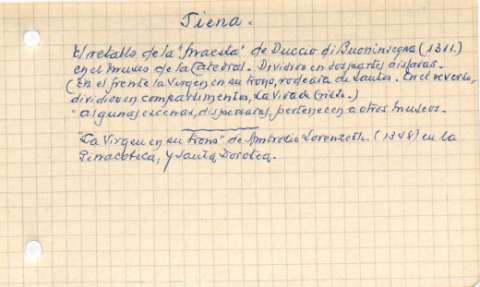 Siena.
El retablo de la "Maestà" de Duccio di Buoninsegna (1311)
en el Museo de la Catedral. Dividido en dos partes aisladas.
(En el frente la Virgen en su trono, rodeada de Santos. En el reverso,
dividido en compartimentos, la Vida de Cristo.
algunas escenas, dispersadas, pertenecen a otros museos.
"La Virgen en su trono" de Ambrosio Lorenzetti. (1348) en la
Pinacoteca, y Santa Dorotea.